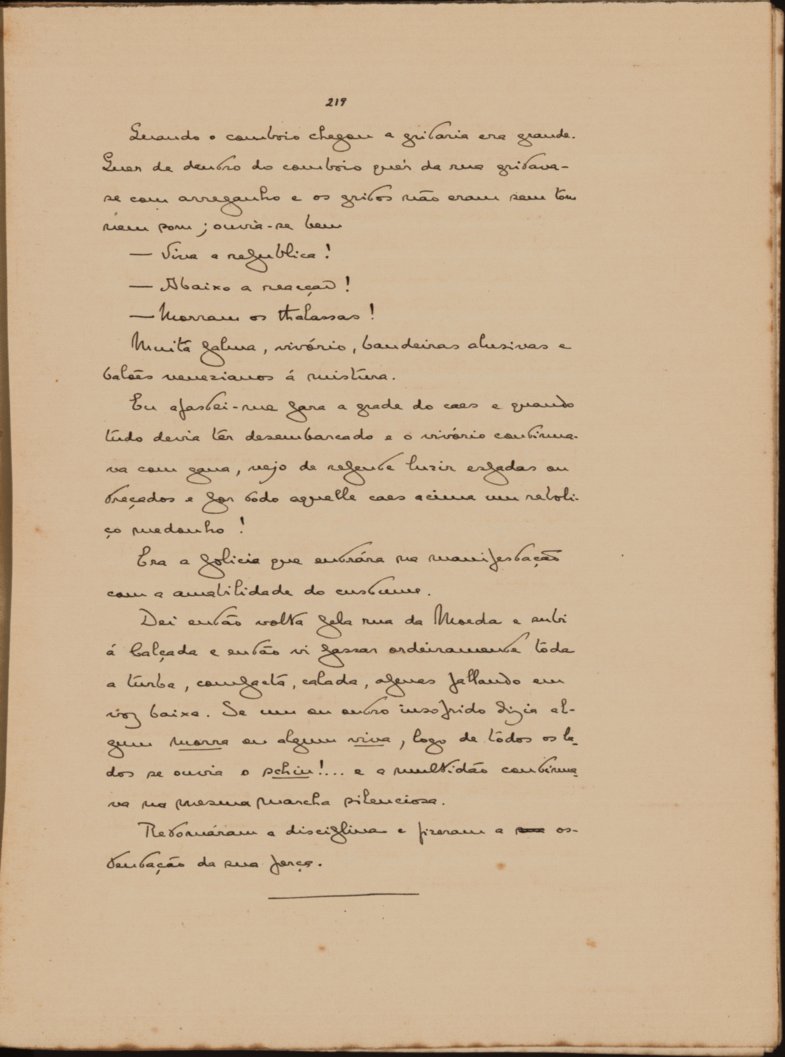 219
Quando o comboio chegou a gritaria era grande.
Quer de dentro do comboio quér da rua gritava-
se com arreganho e os gritos não eram sem tom
nem som; ouvia-se bem
— Viva a republica!
— Abaixo a reacção!
— Morram os thalassas!
Muita palma, vivório, bandeiras alusivas e
balões venezianos á mistura.
Eu afastei-me para a grade do caes e quando
tudo devia têr desembarcado e o vivório continua-
va com gana, vejo de repente luzir espadas ou
treçados e por todo aquelle caes acima um reboli-
ço medonho!
Era a policia que entrára na manifestação
com a amabilidade do custume.
Dei então volta pela rua da Moeda e subi
á Calçada e então vi passar ordeiramente tôda
a turba, compacta, calada, alguns fallando em
voz baixa. Se um ou outro insofrido dizia al-
gum morra ou algum viva, logo de tôdos os la-
dos se ouvia o schiu!... e a multidão continua-
va na mesma marcha silenciosa.
Retomáram a disciplina e fizeram a os-
tentação da sua força.